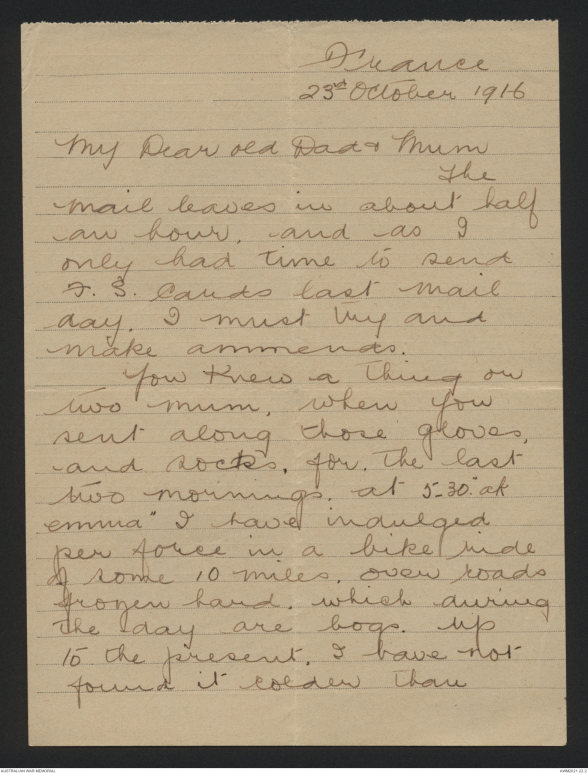 France
23rd October 1916
My Dear old Dad & Mum
The
mail leaves in about half
an hour, and as I
only had time to send
F. S. Cards last mail
day, I must try and
make ammends.
You knew a thing or
two mum, when you
sent along those gloves,
and socks, for, the last
two mornings, at 5-30. "ak
emma" I have indulged
per force in a bike ride
of some 10 miles, over roads
frozen hard, which during
the day are bogs. up
to the present, I have not
found it colder than
AUSTRALIAN WAR MEMORIAL